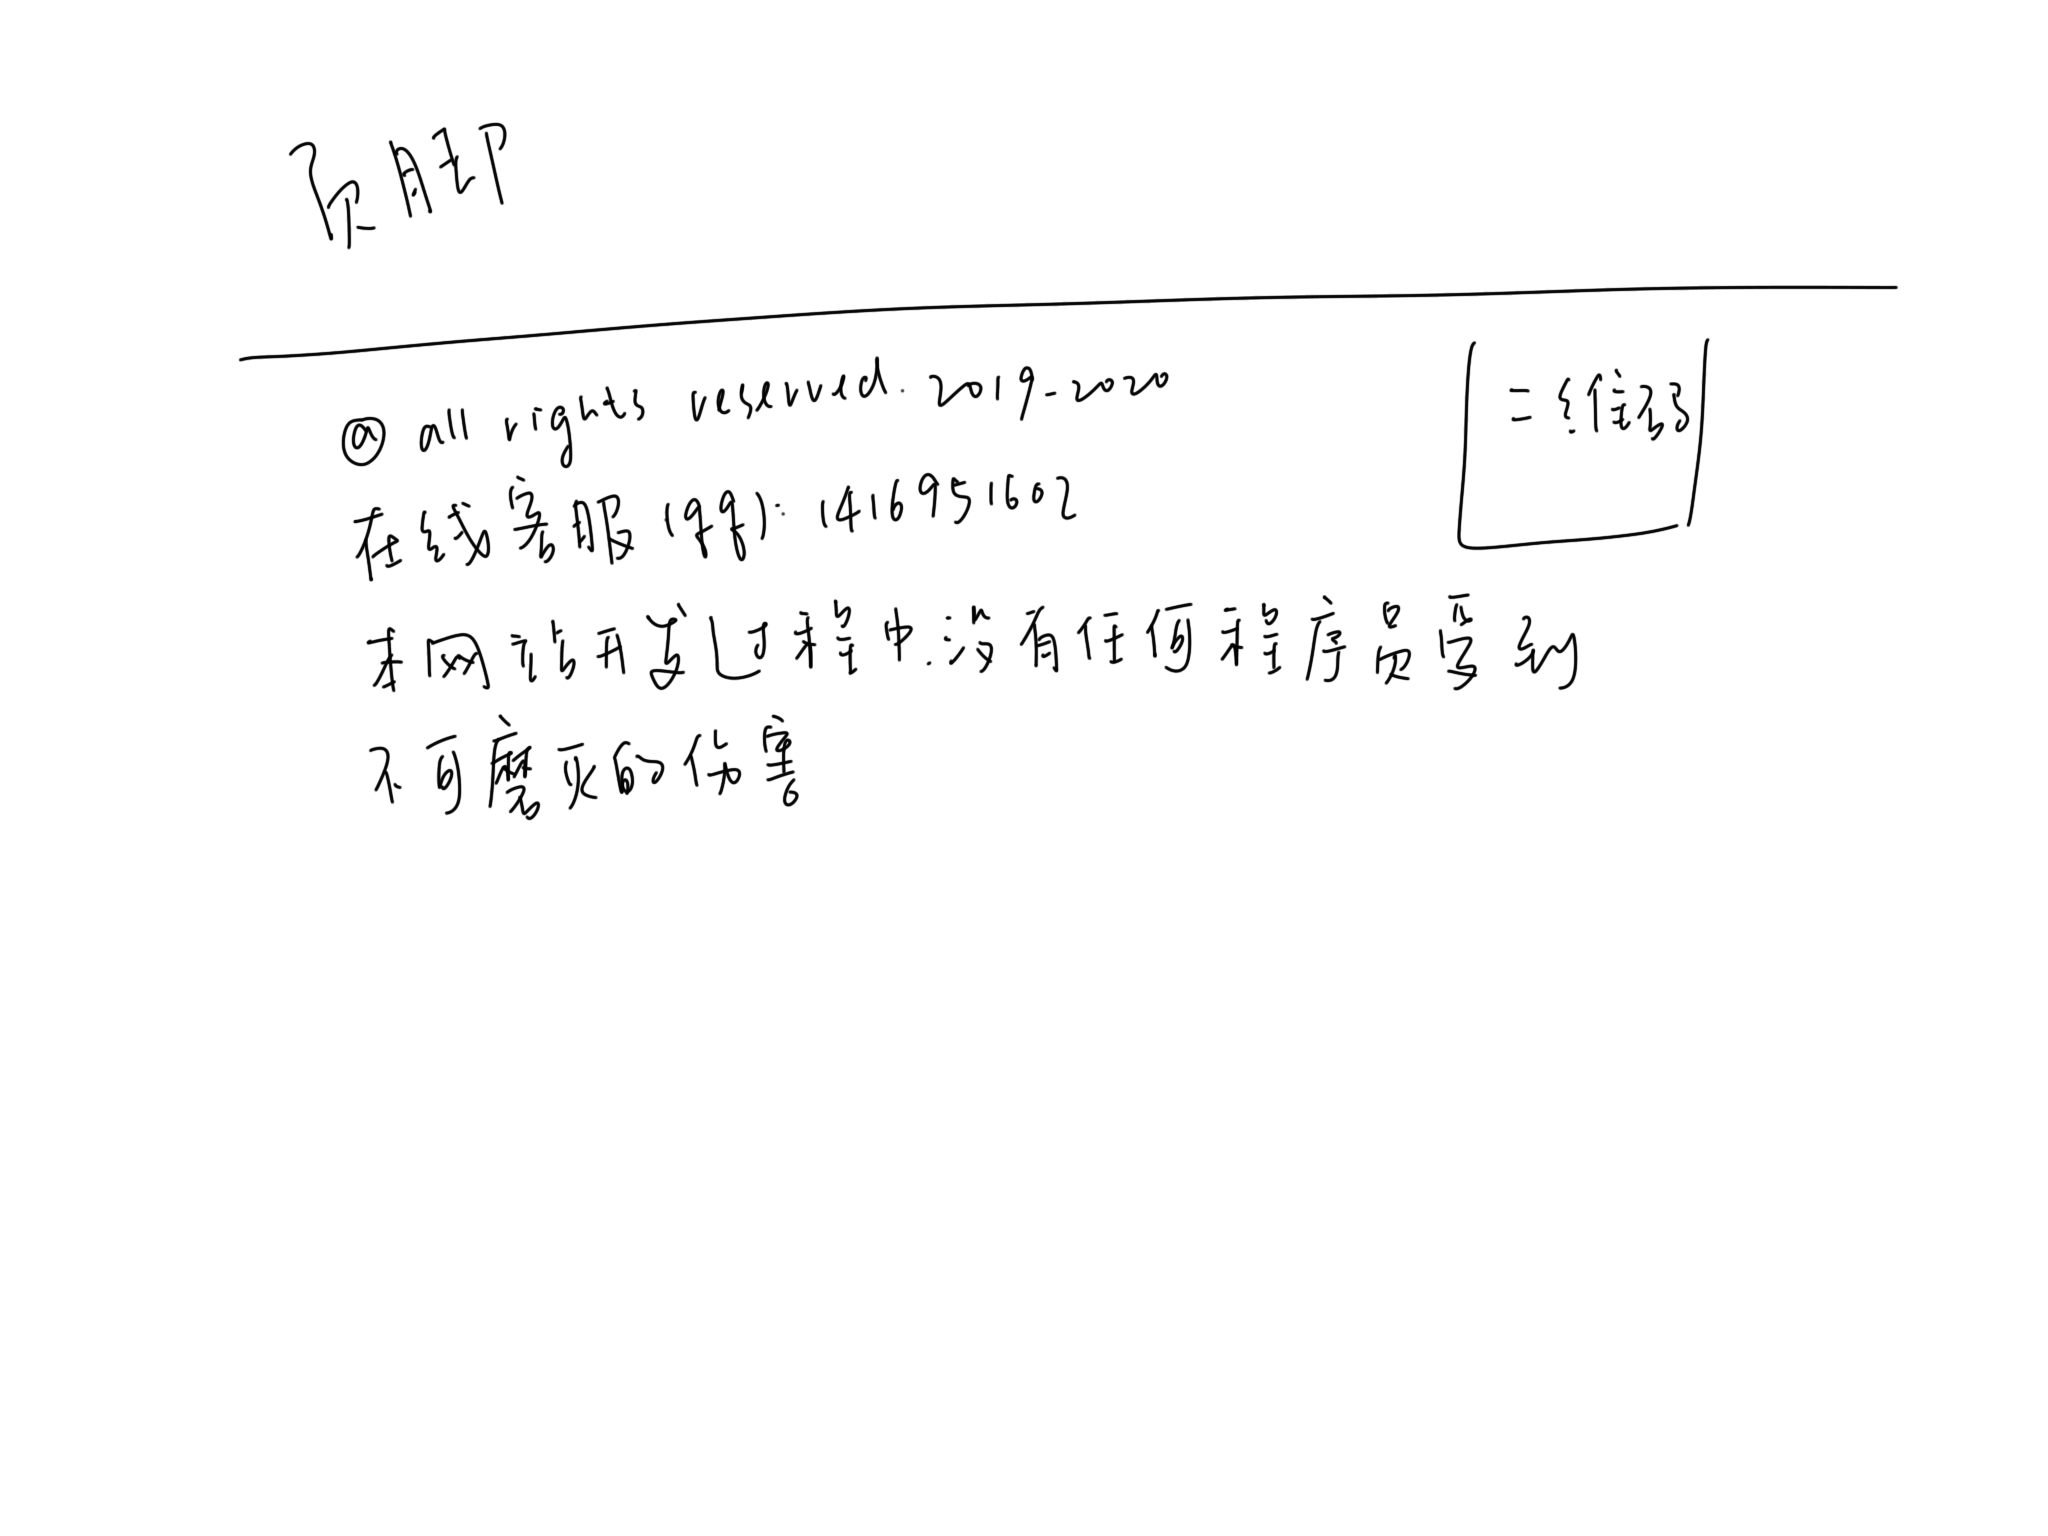 页脚
@ all rights reserved. 2019-2020
二维码
在线客服(qq): 1416951602
本网站开发过程中没有任何程序员受到
不可磨灭的伤害